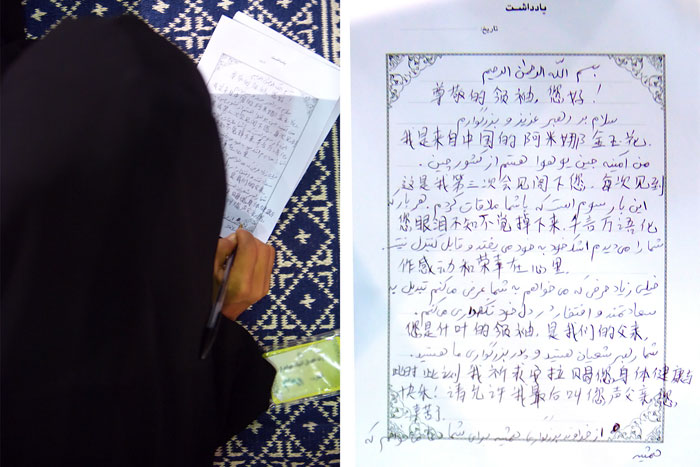 یادداشت
تاریخ:
بسم الله الرحمن الرحیم
尊敬的领袖，您好！
سلام بر رهبر عزیز و بزرگوارم
我是来自中国的阿米娜 金玉花.
من آمنه جین یو هوا هستم از کشور چین.
这是我第三次会见阁下您，每次见到
این بار سوم است که با شما ملاقات کردم. هر بار که
您眼泪不知不觉掉下来，千言万语化
شما را می‌دیدم اشک خود به خود می‌یفتد و قابل کنترل نیست
作感动和荣幸在心里.
خیلی زیاد حرفی که می‌خواهم به شما عرض می‌کنم تبدیل به
سعادتمند و افتخار در دل خود نگهداری می‌کنم.
您是什叶的领袖，是我们的父亲，
شما رهبر شیعیان هستید و پدر بزرگواری ما هستید.
此时此刻我祈求安拉 赐您身体健康与
快乐！请允许我最后叫您声父亲，您
辛苦了
از خداوند برای شما
همیشه